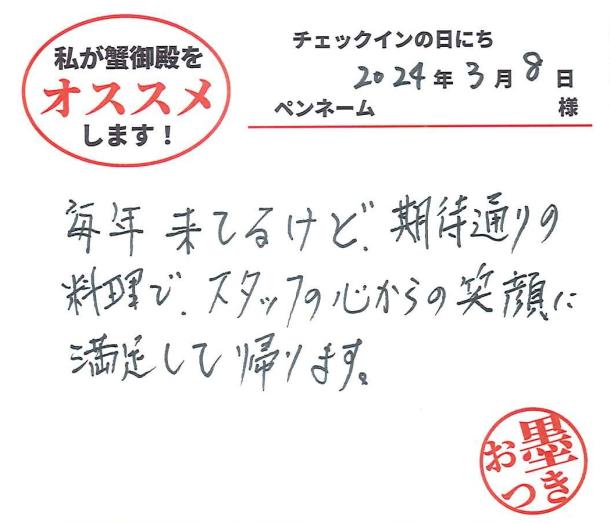 私が蟹御殿を
オススメ
します！
チェックインの日にち
2024年3月8日
ペンネーム 様
毎年来てるけど、期待通りの
料理で、スタッフの心からの笑顔に
満足して帰ります。
お墨つき